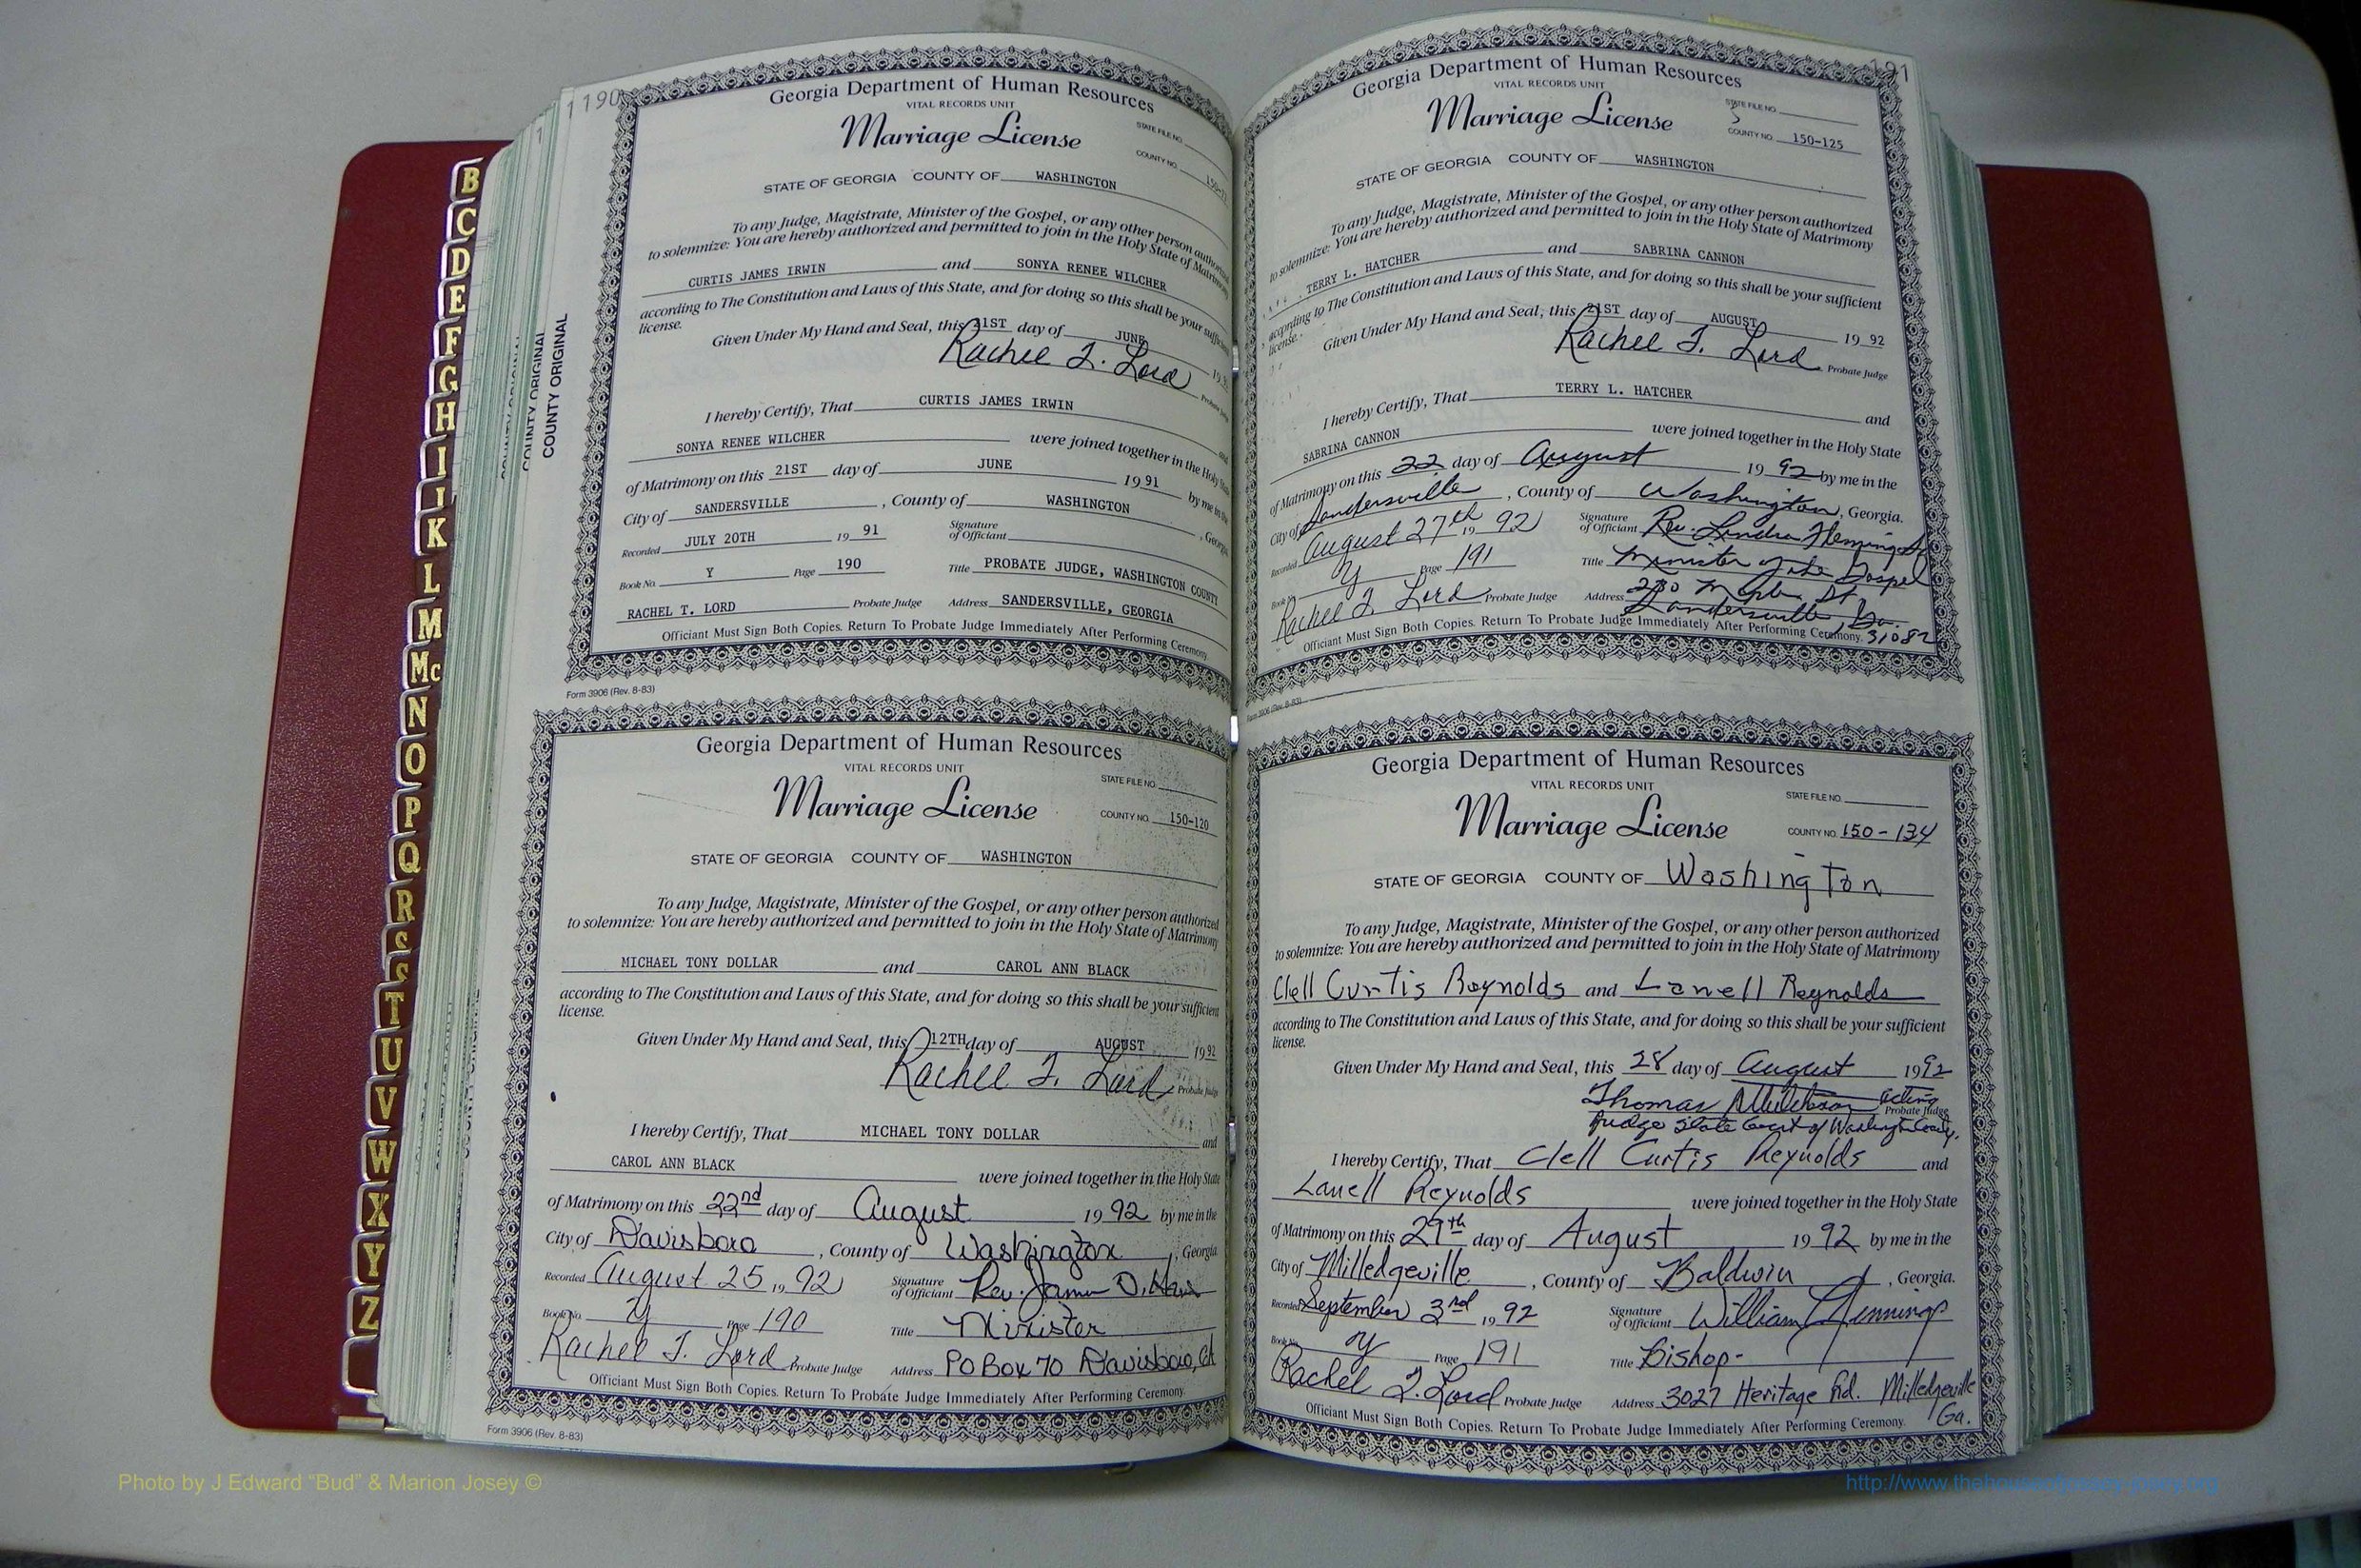 B
C
D
E
F
G
H
I
J
K
L
M
Mc
N
O
P
Q
R
S
S
T
U
V
W
X
Y
Z
COUNTY ORIGINAL
COUNTY ORIGINAL
190
Georgia Department of Human Resources
VITAL RECORDS UNIT
Marriage License
STATE FILE NO.
COUNTY NO.
STATE OF GEORGIA COUNTY OF WASHINGTON
To any Judge, Magistrate, Minister of the Gospel, or any other person authorized
to solemnize: You are hereby authorized and permitted to join in the Holy State of Matrimony
CURTIS JAMES IRWIN and SONYA RENEE WILCHER
according to The Constitution and Laws of this State, and for doing so this shall be your sufficient
license.
Given Under My Hand and Seal, this 21ST day of JUNE
Rachel T. Lord
I hereby Certify, That CURTIS JAMES IRWIN and
SONYA RENEE WILCHER were joined together in the Holy State
of Matrimony on this 21ST day of JUNE 19 91 by me in the
City of SANDERSVILLE, County of WASHINGTON, Georgia
Recorded JULY 20TH 19 91 Signature of Officiant
Book No. Y Page 190 Title PROBATE JUDGE, WASHINGTON COUNTY
RACHEL T. LORD Probate Judge Address SANDERSVILLE, GEORGIA
Officiant Must Sign Both Copies. Return To Probate Judge Immediately After Performing Ceremony.
Form 3906 (Rev. 8-83)
Georgia Department of Human Resources
VITAL RECORDS UNIT
Marriage License
STATE FILE NO.
COUNTY NO. 150-120
STATE OF GEORGIA COUNTY OF WASHINGTON
To any Judge, Magistrate, Minister of the Gospel, or any other person authorized
to solemnize: You are hereby authorized and permitted to join in the Holy State of Matrimony
MICHAEL TONY DOLLAR and CAROL ANN BLACK
according to The Constitution and Laws of this State, and for doing so this shall be your sufficient
license.
Given Under My Hand and Seal, this 12TH day of AUGUST 19 92
Rachel T. Lord Probate Judge
I hereby Certify, That MICHAEL TONY DOLLAR and
CAROL ANN BLACK were joined together in the Holy State
of Matrimony on this 22nd day of August 19 92 by me in the
City of Davisboro, County of Washington, Georgia
Recorded August 25 19 92 Signature of Officiant Rev. James O.
Book No. Y Page 190 Title Minister
Rachel T. Lord Probate Judge Address PO Box 70 Davisboro, GA
Officiant Must Sign Both Copies. Return To Probate Judge Immediately After Performing Ceremony.
Form 3906 (Rev. 8-83)
191
Georgia Department of Human Resources
VITAL RECORDS UNIT
Marriage License
STATE FILE NO.
COUNTY NO. 150-125
STATE OF GEORGIA COUNTY OF WASHINGTON
To any Judge, Magistrate, Minister of the Gospel, or any other person authorized
to solemnize: You are hereby authorized and permitted to join in the Holy State of Matrimony
TERRY L. HATCHER and SABRINA CANNON
according to The Constitution and Laws of this State, and for doing so this shall be your sufficient
license.
Given Under My Hand and Seal, this 21ST day of AUGUST 19 92
Rachel T. Lord Probate Judge
I hereby Certify, That TERRY L. HATCHER and
SABRINA CANNON were joined together in the Holy State
of Matrimony on this 22 day of August 19 92 by me in the
City of Sandersville, County of Washington, Georgia.
Recorded August 27th 19 92 Signature of Officiant Rev. Fleming
Book No. Y Page 191 Title Minister of the Gospel
Rachel T. Lord Probate Judge Address St
Sandersville, Ga. 31082
Officiant Must Sign Both Copies. Return To Probate Judge Immediately After Performing Ceremony.
Form 3906 (Rev. 8-83)
Georgia Department of Human Resources
VITAL RECORDS UNIT
Marriage License
STATE FILE NO.
COUNTY NO. 150-134
STATE OF GEORGIA COUNTY OF Washington
To any Judge, Magistrate, Minister of the Gospel, or any other person authorized
to solemnize: You are hereby authorized and permitted to join in the Holy State of Matrimony
Clell Curtis Reynolds and Lanell Reynolds
according to The Constitution and Laws of this State, and for doing so this shall be your sufficient
license.
Given Under My Hand and Seal, this 28 day of August 1992
Thomas acting Probate Judge
Judge State Court of Washington County.
I hereby Certify, That Clell Curtis Reynolds and
Lanell Reynolds were joined together in the Holy State
of Matrimony on this 29th day of August 19 92 by me in the
City of Milledgeville, County of Baldwin, Georgia.
Recorded September 3rd 19 92 Signature of Officiant William Jennings
Book No. Y Page 191 Title Bishop-
Rachel T. Lord Probate Judge Address 3027 Heritage Rd. Milledgeville
Ga.
Officiant Must Sign Both Copies. Return To Probate Judge Immediately After Performing Ceremony.
Photo by J Edward "Bud" & Marion Josey ©